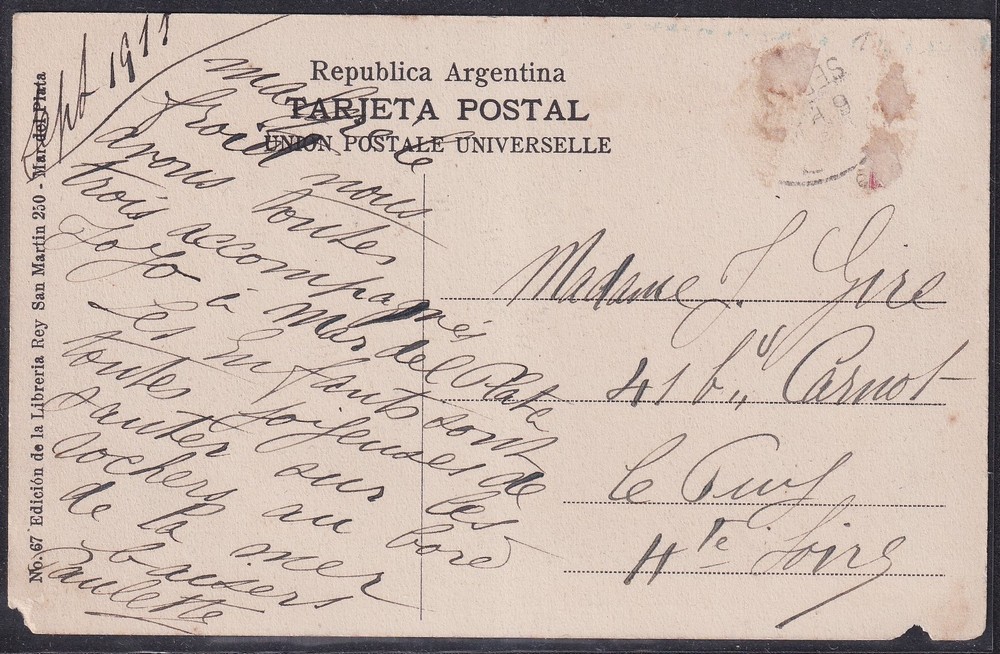 Sept 1911
Republica Argentina
TARJETA POSTAL
UNION POSTALE UNIVERSELLE
No. 67 Edición de la Libreria Rey San Martin 250 - Mar del Plata
malgré le
froid nous
avons toutes
trois accompagnés
Jojo à Mar del Plata
Les enfants sont
toutes joyeuses de
sauter sur les
rochers au bord
de la mer
baisers
Paulette
Madame J. Gire
41 bd Carnot
Le Puy
Hte Loire